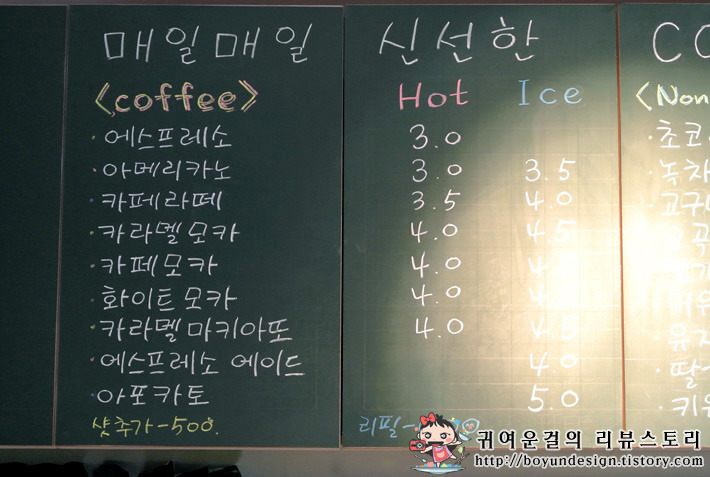 매일매일 신선한
<coffee> Hot Ice <Non
· 에스프레소 3.0 · 초코
· 아메리카노 3.0 3.5 · 녹차
· 카페라떼 3.5 4.0 · 고구
· 카라멜모카 4.0 4.5
· 카페모카 4.0
· 화이트모카 4.0
· 카라멜마키아또 4.0 4.5 · 유자
· 에스프레소 에이드 4.0 · 딸
· 아포카토 5.0 · 키위
샷추가-500. 리필-
귀여운걸의 리뷰스토리
http://boyundesign.tistory.com/